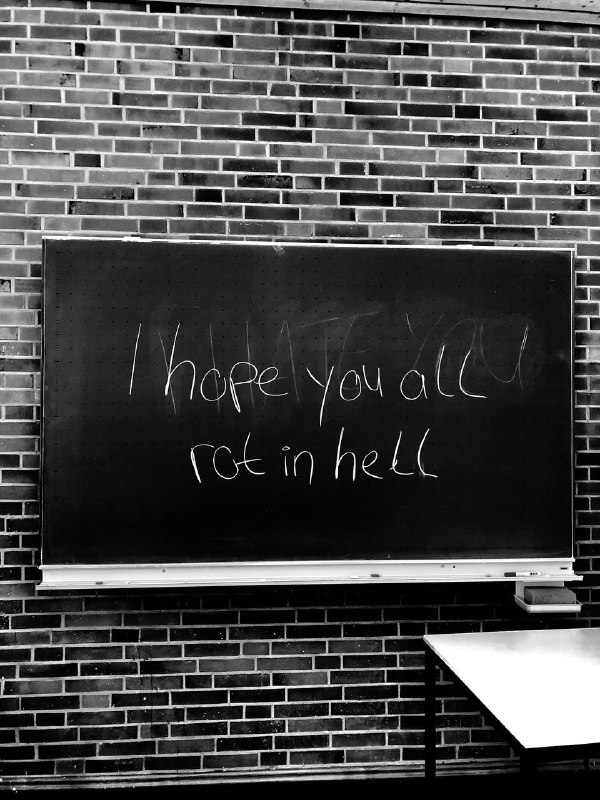 I hope you all
rot in hell